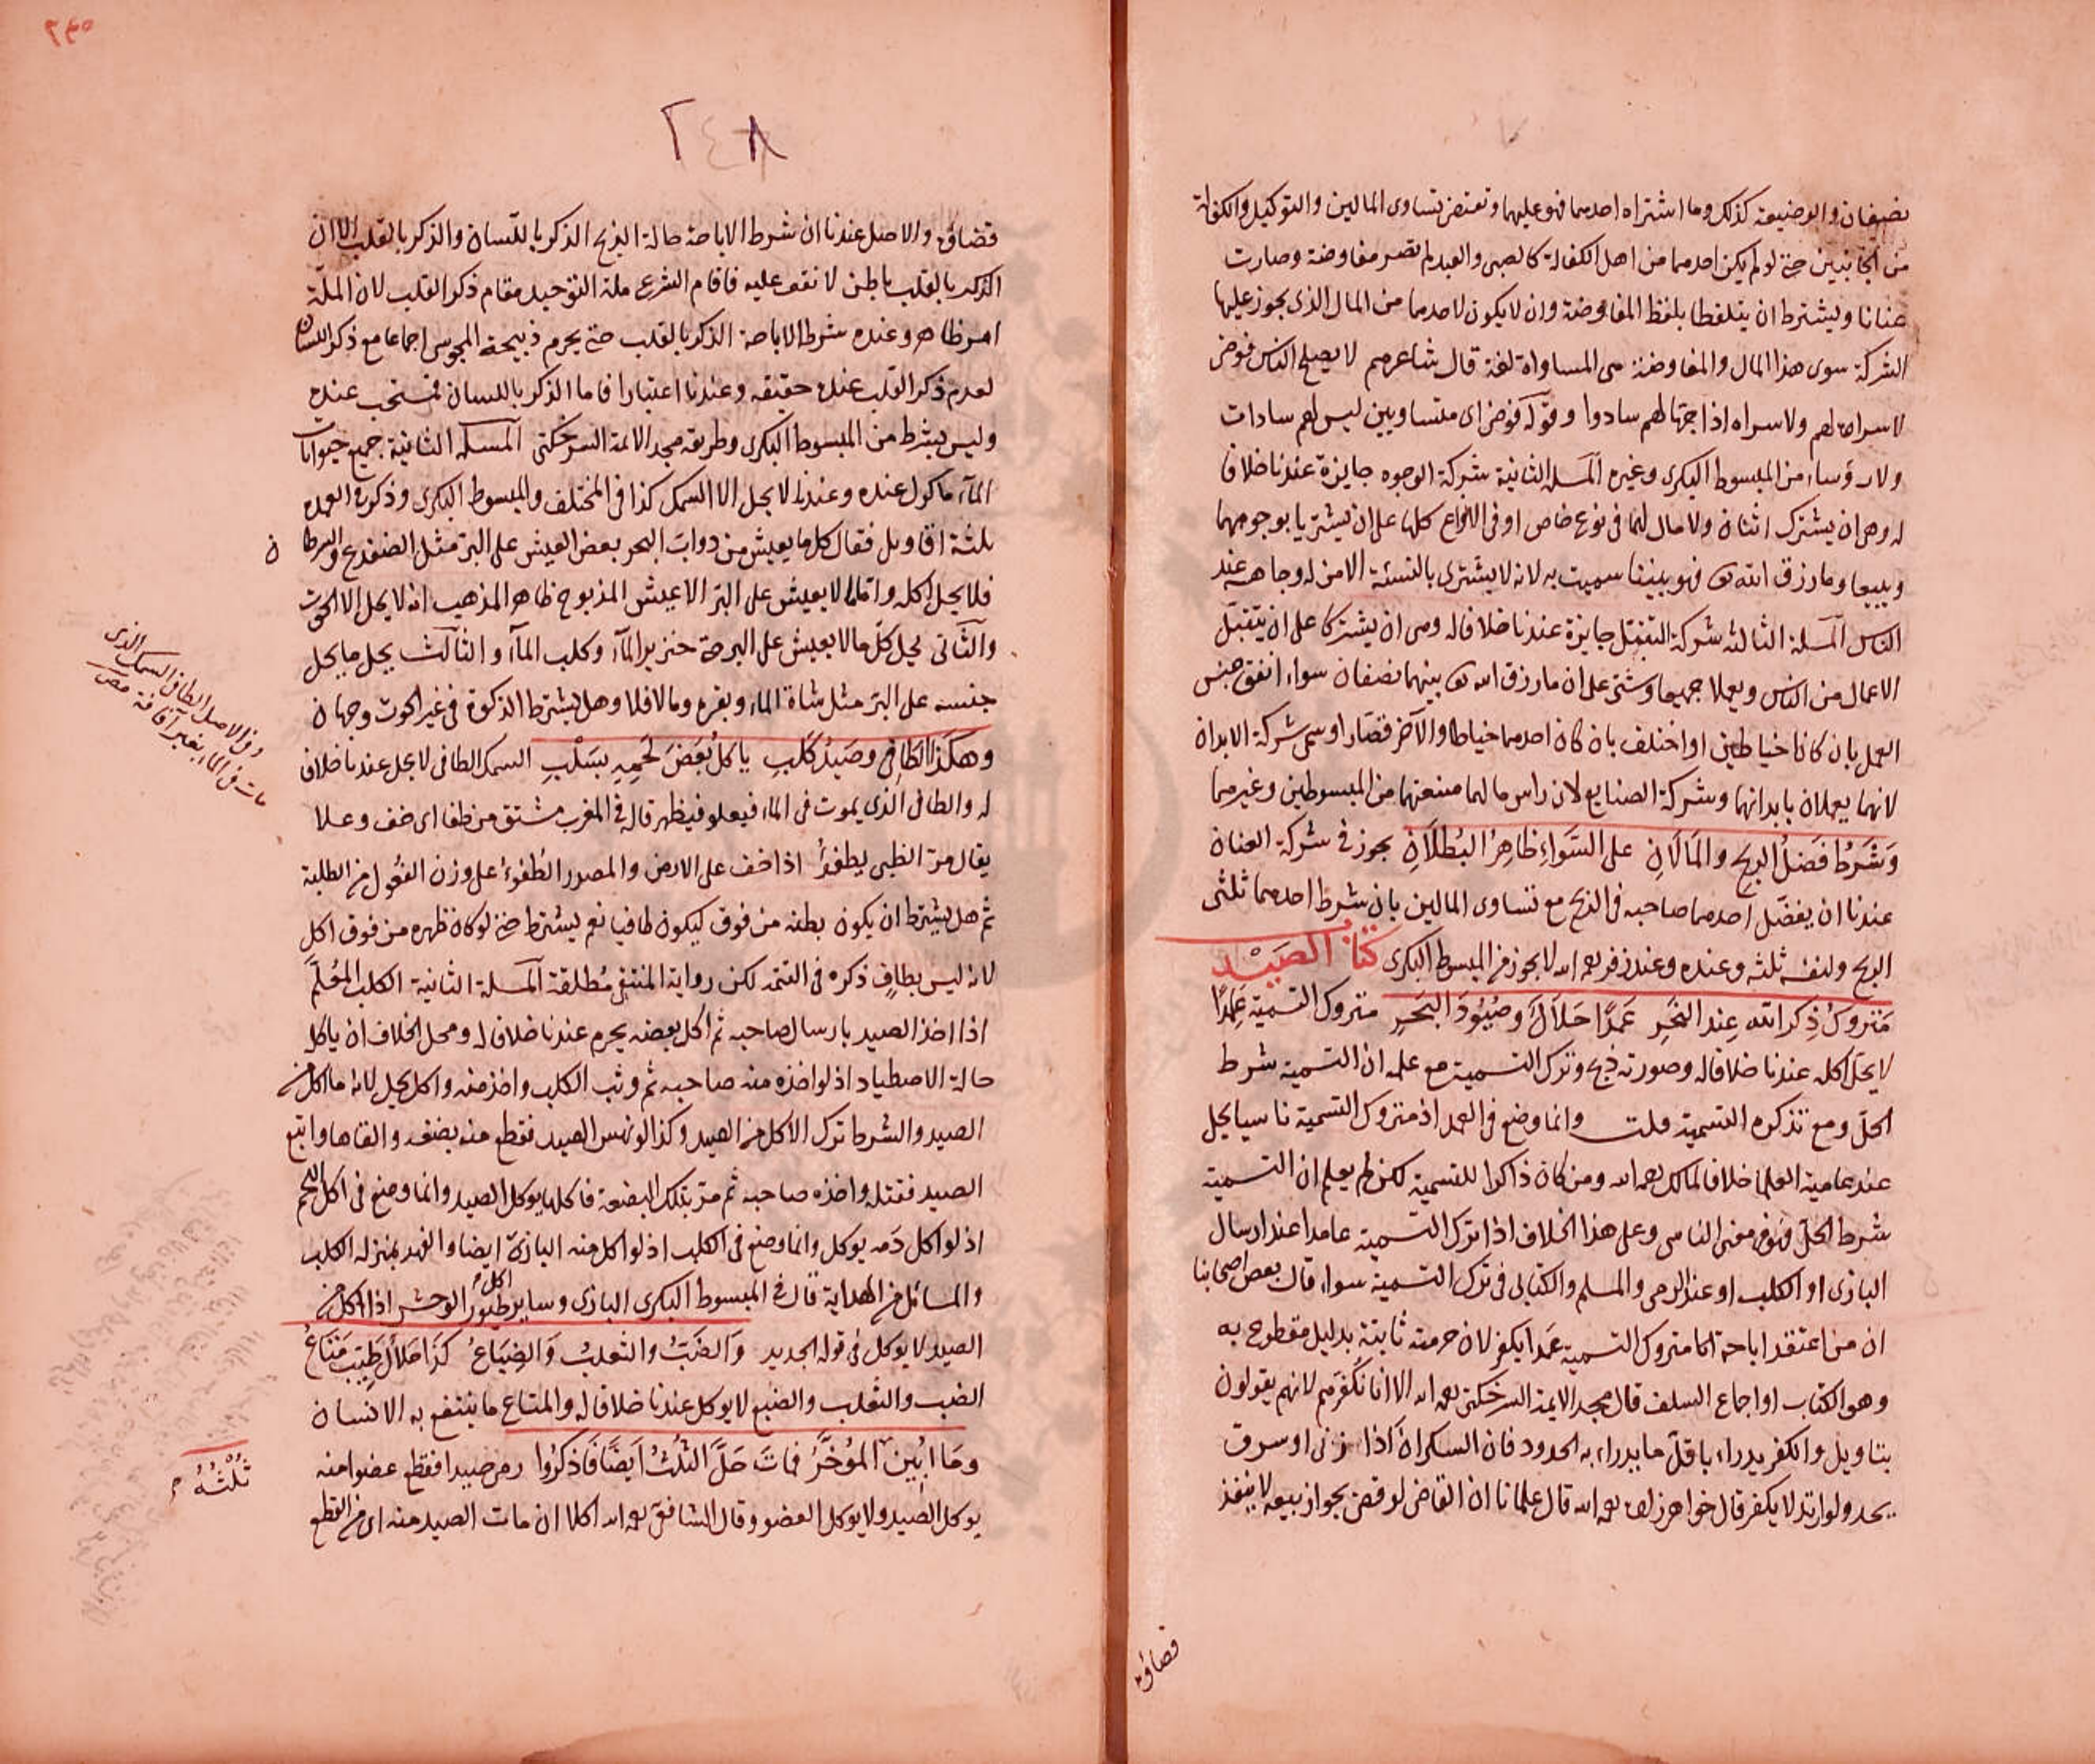 نصفان والوضيعة كذلك وما اشتراه احدهما فهو عليهما وتقتضى تساوى المالين والتوكيل والكفالة
من الجانبين حتى لو لم يكن احدهما من اهل الكفالة كالصبى والعبد لم تصر مفاوضة وصارت
عنانا ويشترط ان يتلفظا بلفظ المفاوضة وان لا يكون لاحدهما من المال الذى يجوز عليها
الشركة سوى هذا المال والمفاوضة هى المساواة لغة قال شاعرهم لا يصلح الناس فوضى
لا سراة لهم ولا سراه اذا جهالهم سادوا وقوله فوضى اى متساويين ليس لهم سادات
ولا رؤساء من المبسوط البكرى وغيره المسلة الثانية شركة الوجوه جايزة عندنا خلافا
له وهى ان يشترك اثنان ولا مال لهما فى نوع خاص او فى الانواع كلها على ان يشتريا بوجوههما
ويبيعا وما رزق الله تعـ فهو بيننا سميت به لانه لا يشترى بالنسئة الا من له وجاهة عند
الناس المسلة الثالثه شركة التقبّل جايزة عندنا خلافا له وهى ان يشتركا على ان يتقبّل
الاعمال من الناس ويعملا جميعا وشتى على ان ما رزق الله تعـ بينهما نصفان سواء اتفق جنس
العمل بان كانا خياطين او اختلف بان كان احدهما خياطا والآخر قصّارا وسمى شركة الابدان
لانهما يعملان بابدانهما وشركة الصنايع لان راس مالهما صنعتهما من المبسوطين وغيرهما
وَشَرْطُ فَضْلُ الربح والمَالَانِ على السَّواءِ ظاهِرُ البُطلَانِ يجوز فى شركة العنان
عندنا ان يفضّل احدهما صاحبه فى الربح مع تساوى المالين بان شرط احدهما ثلثى
الربح ولنفسه ثلثه وعنده وعند زفر رحمه الله لا يجوز من المبسوط البكرى كتابُ الصَيْد
مَترُوكُ ذِكرِ الله عِندَ النَحْرِ عَمدًا حَلالٌ وصُيُودُ البَحْرِ متروك التسمية عمدًا
لا يحل اكله عندنا خلافا له وصورته ذبح وترك التسمية مع علمه ان التسمية شرط
الحلّ ومع تذكره التسمية قلت وانما وضع فى العمد اذ متروك التسمية ناسيا يحل
عند عامة العلماء خلافا لمالك رحمه الله ومن كان ذاكرا للتسمية لكن لم يعلم ان التسمية
شرط الحلّ فهو فى معنى الناسى وعلى هذا الخلاف اذا ترك التسمية عامدا عند ارسال
البازى او الكلب او عند الرمى والمسلم والكتابى فى ترك التسمية سواء قال بعض اصحابنا
ان من اعتقد اباحة متروك التسمية عمدا يكفر لان حرمته ثابتة بدليل مقطوع به
وهو الكتاب او اجماع السلف قال مجد الايمة السرخكتى رحمه الله الا انا نكفرهم لانهم يقولون
بتاويل والكفر يدراء باقلّ ما يدراء به الحدود فان السكران اذا زنى او سرق
يحد ولو ارتد لا يكفر قال خواهرزاده رحمه الله قال علمانا ان القاضى لو قضى بجواز بيعه لا ينفذ
قضاؤه
٢٤٨
قضاؤه والاصل عندنا ان شرط الاباحة حالة الذبح الذكر باللسان والذكر بالقلب الا ان
الذكر بالقلب باطن لا نقف عليه فاقام الشرع ملة التوحيد مقام ذكر القلب لان الملّة
امر ظاهر وعنده شرط الاباحة الذكر بالقلب حتى يحرم ذبيحة المجوس اجماعا مع ذكر اللسان
لعدم ذكر القلب عنده حقيقه وعندنا اعتبارا فاما الذكر باللسان فمستحب عنده
وليس بشرط من المبسوط البكرى وطريقه مجد الائمة السرخكتى المسلة الثانية جميع حيوانات
الماء ماكول عنده وعندنا لا يحل الا السمك كذا فى المختلف والمبسوط البكرى وذكر فى العمدة
ثلثة اقاويل فقال كل ما يعيش من دوابّ البحر بعض العيش على البر مثل الضفدع والسرطان
فلا يحل اكله واما ما لا يعيش على البرّ الا عيش المذبوح ظاهر المذهب انه لا يحل الا الحوت
والثانى يحل كلّ ما لا يعيش على البر حتى خنزير الماء وكلب الماء والثالث يحل ما يحل
جنسه على البرّ مثل شاة الماء وبقره وما لا فلا وهل يشترط الذكوة فى غير الحوت وجهان
وهكَذا الطَافِى وصَيدُ كَلبِ ياكلُ بَعضَ لَحمِهِ بسَلْبِ السمك الطافى لا يحل عندنا خلافا
له والطافى الذى يموت فى الماء فيعلو فيظهر قال فى المغرب مشتق من طفا اى خف وعلا
يقال مرّ الظبى يطفو اذا خف على الارض والمصدر الطُفُوّ على وزن الفُعُول من الطلبة
ثم هل يشترط ان يكون بطنه من فوق ليكون طافيا نعم يشترط حتى لو كان ظهره من فوق اكل
لانه ليس بطافٍ ذكره فى التتمة لكن رواية المنتقى مُطلقة المسلة الثانية الكلب المُعلَّم
اذا اخذ الصيد بارسال صاحبه ثم اكل بعضه يحرم عندنا خلافا له ومحل الخلاف ان ياكل
حالة الاصطياد اذ لو اخذه منه صاحبه ثم وثب الكلب واخذ منه واكل يحل لانه ما اكل من
الصيد والشرط ترك الاكل من الصيد وكذا لو نهس الصيد فقطع منه بضعة والقاها واتبع
الصيد فقتله واخذه صاحبه ثم مرّ بتلك البضعة فاكلها يوكل الصيد وانما وضع فى اكل اللحم
اذ لو اكل دَمه يوكل وانما وضع فى الكلب اذ لو اكل منه البازى ايضا والفهد بمنزلة الكلب
والمسائل من الهداية قال فى المبسوط البكرى البازى وساير طيور الوحش اذا اكل من
الصيد لا يوكل فى قوله الجديد وَالضَبُّ والثعلبُ وَالضِبَاعُ كَذَا حَلالٌ طَيّبٌ مَتَاعُ
الضب والثعلب والضبع لا يوكل عندنا خلافا له والمتاع ما ينتفع به الانسان
ومَا اُبِين المُؤخَّرُ فمَاتَ حَلَّ الثُلُثُ ايضًا فَاذكرُوا رمى صيدا فقطع عضوا منه
يوكل الصيد ولا يوكل العضو وقال الشافعى رحمه الله اكلا ان مات الصيد منه اى من القطع
وفى الاصل الطافى السمك الذى
مات فى الماء بغير آفة
ثُلُثُهُ